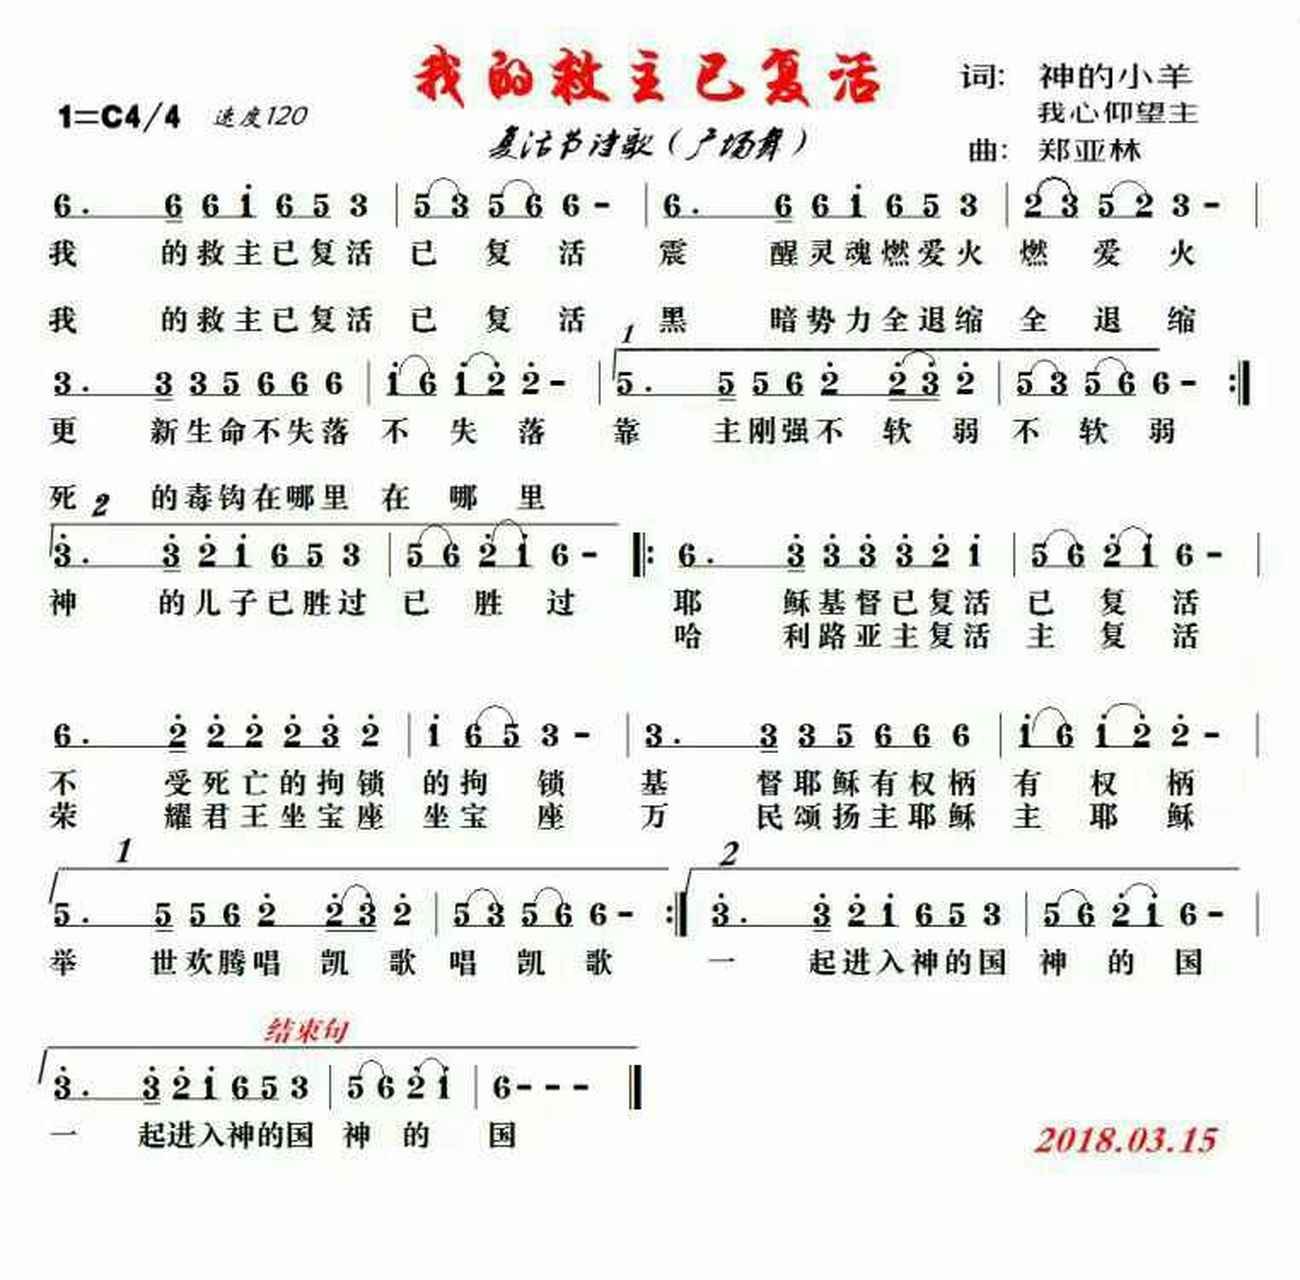 我的救主已复活
词: 神的小羊
我心仰望主
1=C4/4 速度120
复活节诗歌（广场舞）
曲: 郑亚林
6. 6 6 i 6 5 3 | 5 3 5 6 6 - | 6. 6 6 i 6 5 3 | 2 3 5 2 3 - |
我 的救主已复活 已 复 活 震 醒灵魂燃爱火 燃 爱 火
我 的救主已复活 已 复 活 黑 暗势力全退缩 全 退 缩
1
3. 3 3 5 6 6 6 | i 6 i 2̇ 2̇ - | 5. 5 5 6 2̇ 2̇ 3̇ 2̇ | 5 3 5 6 6 - :|
更 新生命不失落 不 失 落 靠 主刚强不 软 弱 不 软 弱
死 的毒钩在哪里 在 哪 里
2
3̇. 3̇ 2̇ i 6 5 3 | 5 6 2̇ i 6 - |: 6. 3̇ 3̇ 3̇ 3̇ 2̇ i | 5 6 2̇ i 6 - |
神 的儿子已胜过 已 胜 过 耶 稣基督已复活 已 复 活
哈 利路亚主复活 主 复 活
6. 2̇ 2̇ 2̇ 2̇ 3̇ 2̇ | i 6 5 3 - | 3. 3 3 5 6 6 6 | i 6 i 2̇ 2̇ - |
不 受死亡的拘锁 的拘 锁 基 督耶稣有权柄 有 权 柄
荣 耀君王坐宝座 坐宝 座 万 民颂扬主耶稣 主 耶 稣
1 2
5. 5 5 6 2̇ 2̇ 3̇ 2̇ | 5 3 5 6 6 - :| 3̇. 3̇ 2̇ i 6 5 3 | 5 6 2̇ i 6 - |
举 世欢腾唱 凯 歌 唱 凯 歌 一 起进入神的国 神 的 国
结束句
3̇. 3̇ 2̇ i 6 5 3 | 5 6 2̇ i | 6 - - - ‖
一 起进入神的国 神 的 国
2018.03.15